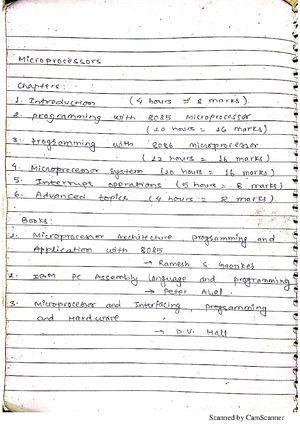 Microprocessors
Chapters:
1. Introduction (4 hours = 8 marks).
2. programming with 8085 Microprocessor
(10 hours = 16 marks)
3. programming with 8086 microprocessor
(12 hours = 16 marks)
4. Microprocessor System (10 hours = 16 marks)
5. Interrupt operations (5 hours = 8 marks)
6. Advanced topics (4 hours = 8 marks).
Books:
1. Microprocessor Architecture programming and
Application with 8085
→ Ramesh S Gaonker
2. IBM PC Assembly language and programming
→ Peter Abel.
3. Microprocessor and Interfacing, programming
and Hardware.
→ D.V. Hall
Scanned by CamScanner